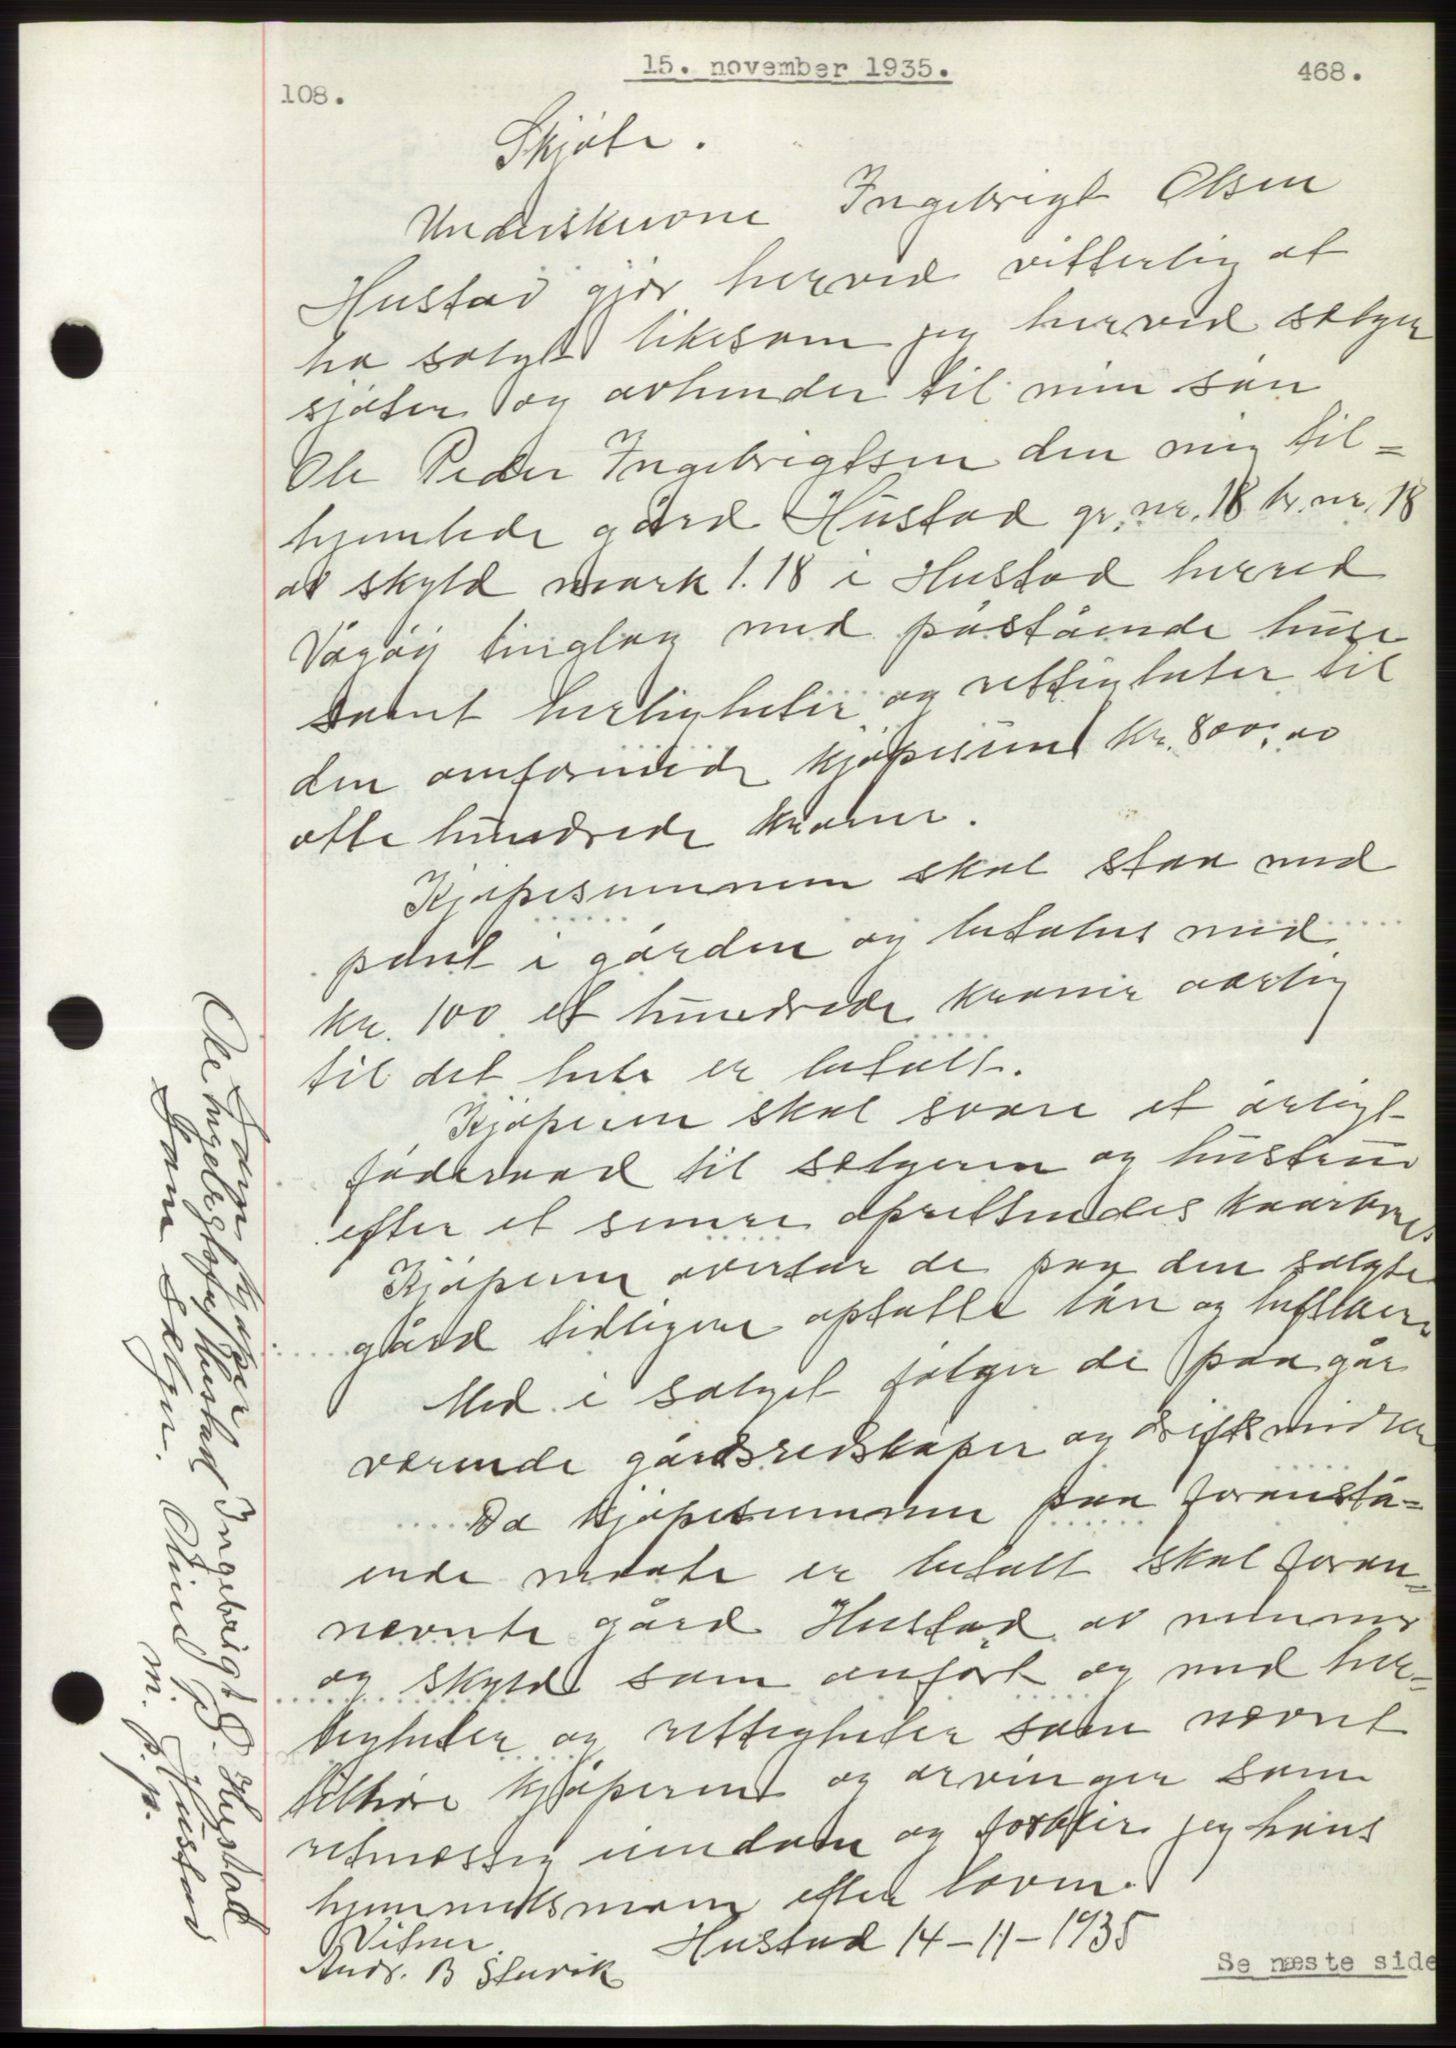 15. november 1935.
468.
108.
Skjøte.
Underskrevne Ingebrigt Olsen
Hustad gjør herved vitterlig at
ha solgt likesom jeg herved sælger
sjøter og avhender til min søn
Ole Peder Ingebrigtsen den mig til=
hjemlede gård Hustad gr. nr. 18 br. nr. 18
av skyld mark 1.18 i Hustad herred
Vågøy tinglag med påstående huse
samt herligheter og rettigheter til
den omforenede kjøpesum kr. 800,00
otte hundrede kroner.
Kjøpesummen skal staa med
pant i gården og betales med
kr. 100 et hundrede kroner aarlig
til det hele er betalt.
Kjøperen skal svare et årligt
føderaad til sælgeren og hustru
efter et senere oprettendes kaarbrev
Kjøperen overtar de paa den solgte
gård tidligere optatte lån og heftelser
Med i salget følger de paa går
værende gårdsredskaper og driftsmidler
Da kjøpesummen paa foranstå=
ende maate er betalt skal foran=
nevnte gård Hustad av nummer
og skyld som anført og med her=
ligheter og rettigheter som nevnt
tilhøre kjøperen og arvinger som
retmessig eiendom og forblir jeg hans
hjemmelsmann efter loven.
Hustad 14-11-1935
Vitner
Andr. B Stavik
Se næste side
Som kjøper
Ole Ingebrigtsen Hustad
Som sælger.
Ingebrigt O. Hustad
B. Hustad
m. p. p.